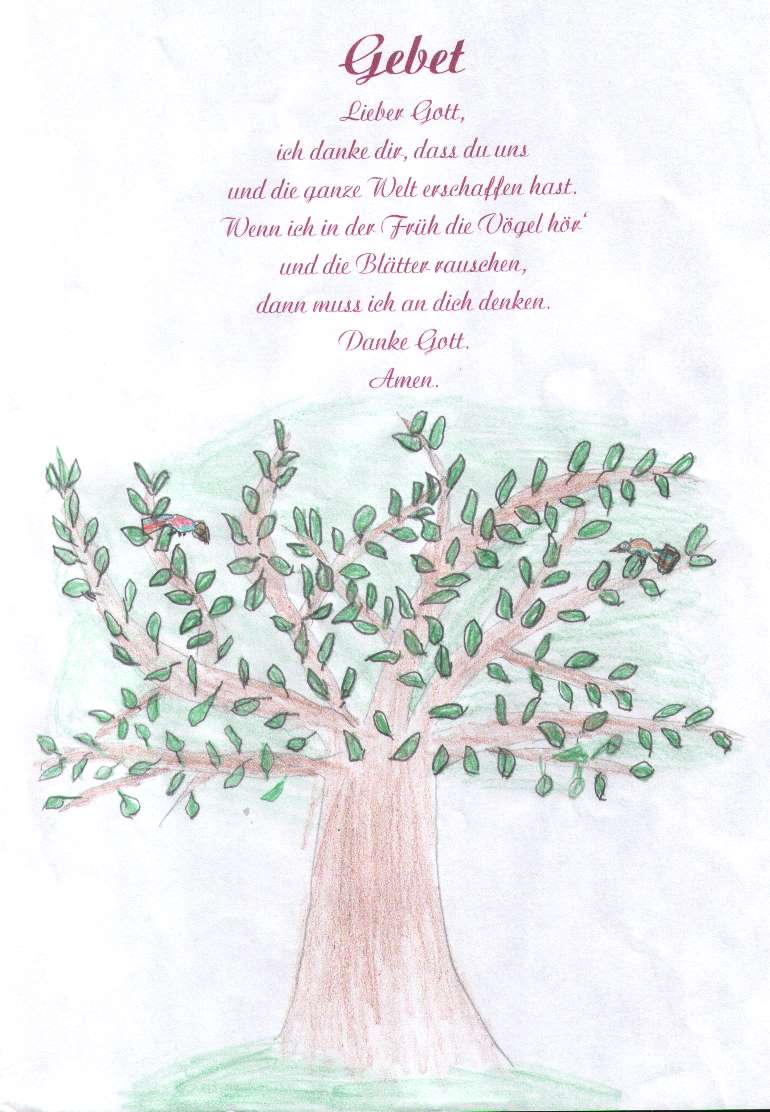 Gebet
Lieber Gott,
ich danke dir, dass du uns
und die ganze Welt erschaffen hast.
Wenn ich in der Früh die Vögel hör‘
und die Blätter rauschen,
dann muss ich an dich denken.
Danke Gott.
Amen.